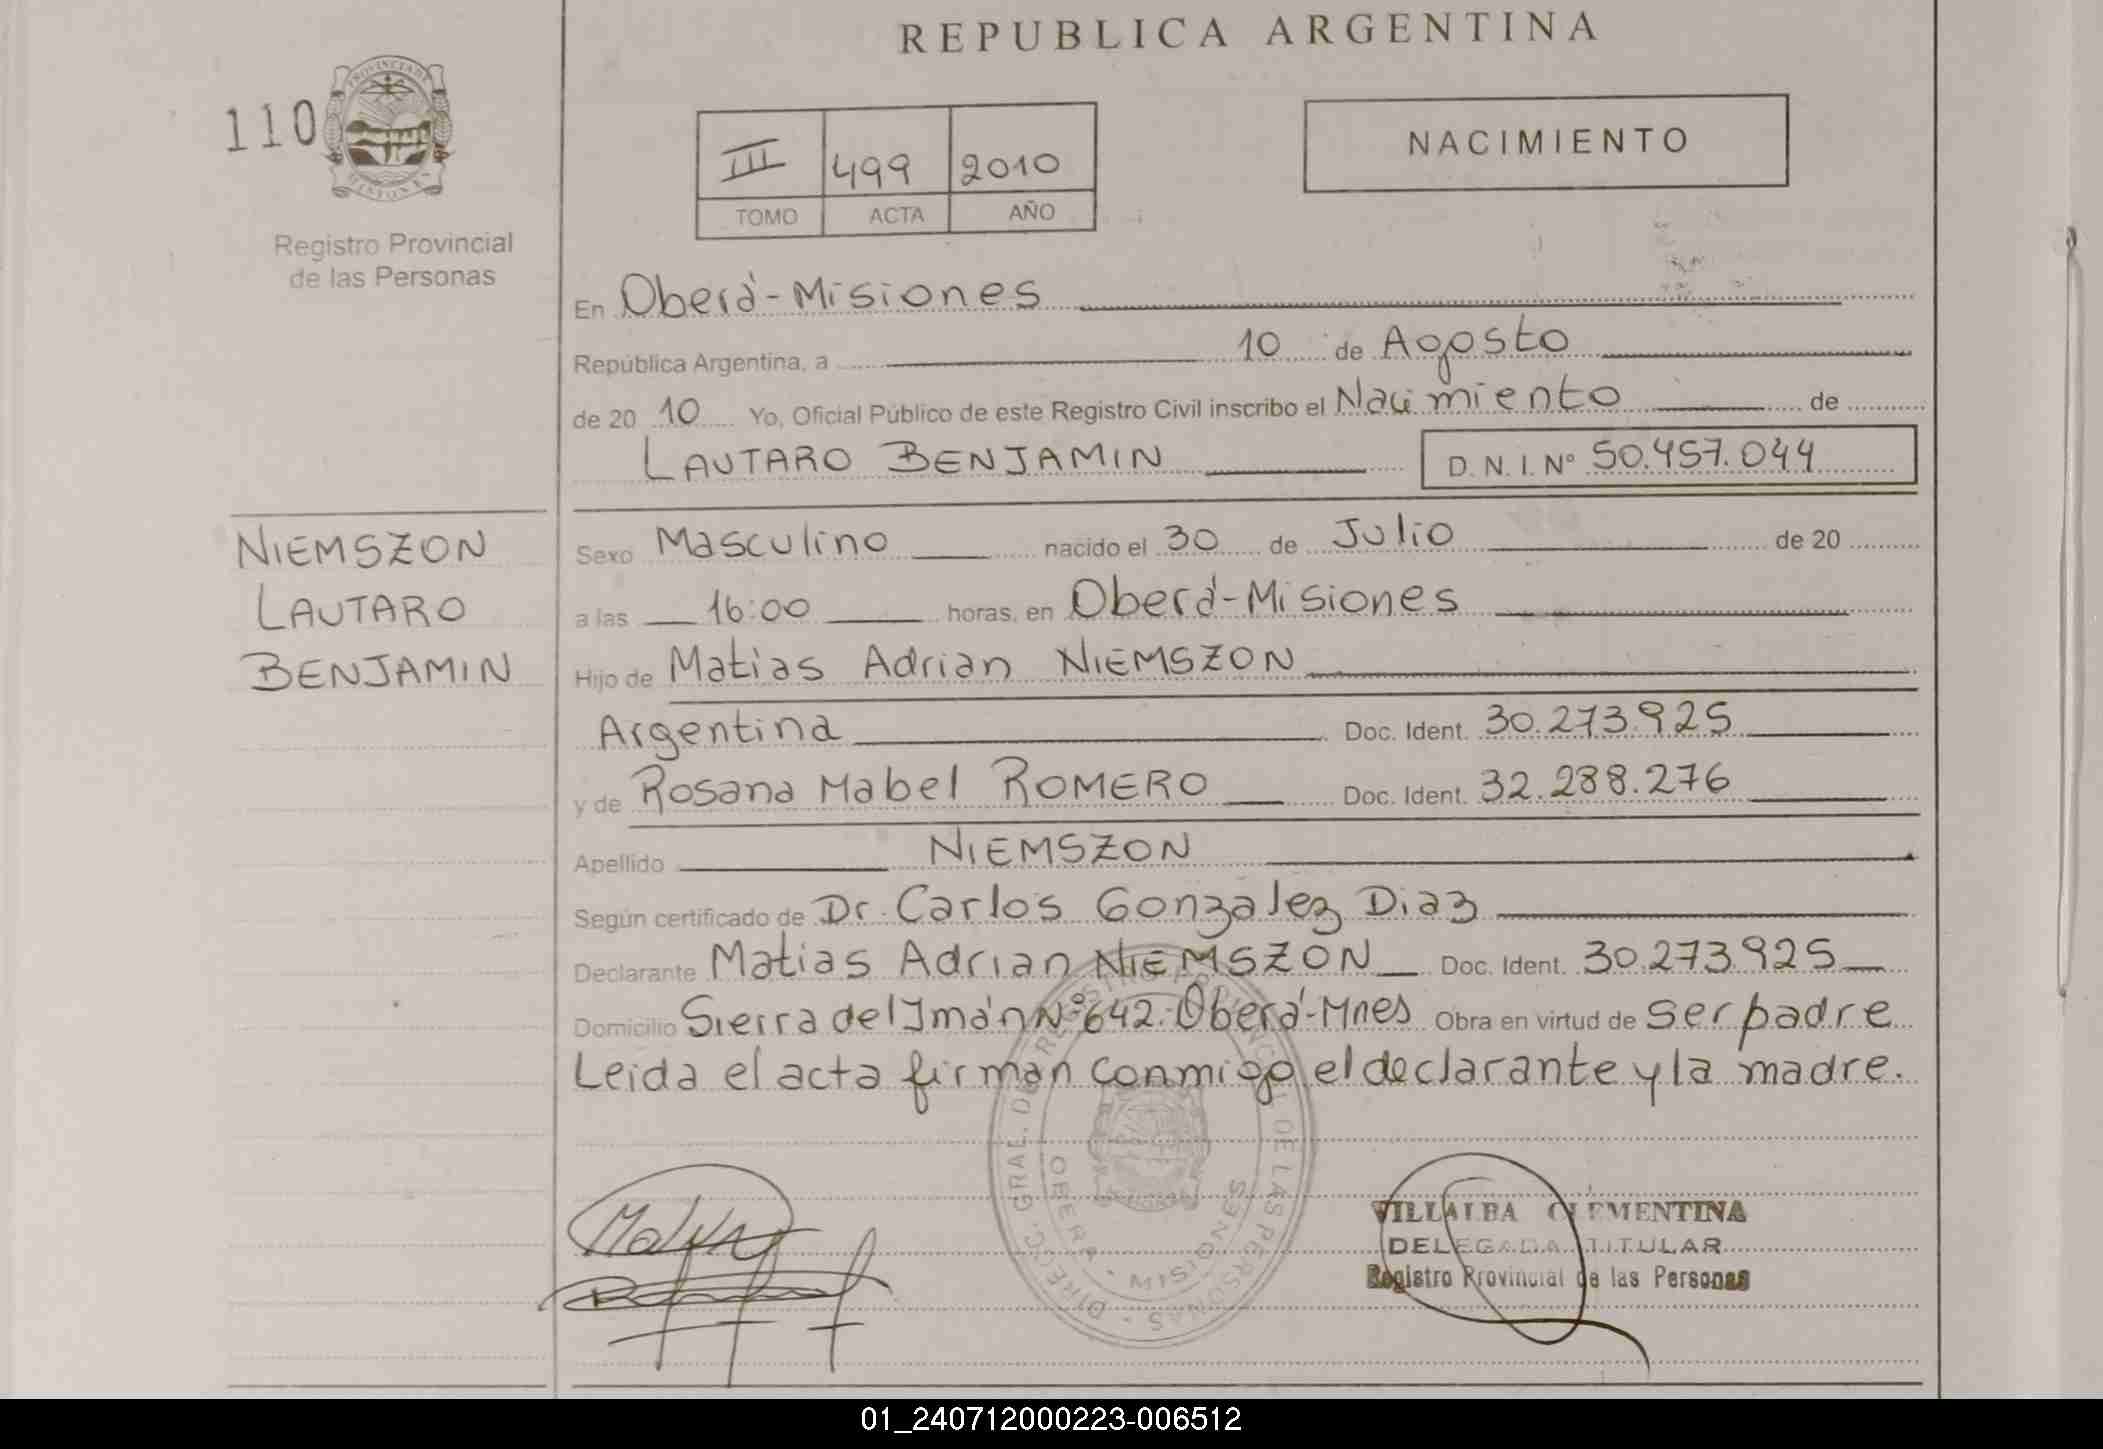 REPUBLICA ARGENTINA
110
PROVINCIA DE
MISIONES
Registro Provincial
de las Personas
III 499 2010
TOMO ACTA AÑO
NACIMIENTO
En Oberá-Misiones
República Argentina, a 10 de Agosto
de 20 10 Yo, Oficial Público de este Registro Civil inscribo el Nacimiento de
LAUTARO BENJAMIN D.N.I.Nº 50.457.044
NIEMSZON
LAUTARO
BENJAMIN
Sexo Masculino nacido el 30 de Julio de 20
a las 16:00 horas, en Oberá-Misiones
Hijo de Matias Adrian NIEMSZON
Argentina Doc. Ident. 30.273.925
y de Rosana Mabel ROMERO Doc. Ident. 32.288.276
Apellido NIEMSZON
Según certificado de Dr. Carlos Gonzalez Diaz
Declarante Matias Adrian NIEMSZON Doc. Ident. 30.273.925
Domicilio Sierra del Imán Nº 642. Oberá-Mnes Obra en virtud de ser padre
Leida el acta firman conmigo el declarante y la madre.
DIREC. GRAL. DE REGISTRO PROVINCIAL DE LAS PERSONAS
OBERA - MISIONES
VILLALBA CLEMENTINA
DELEGADA TITULAR
Registro Provincial de las Personas
01_240712000223-006512